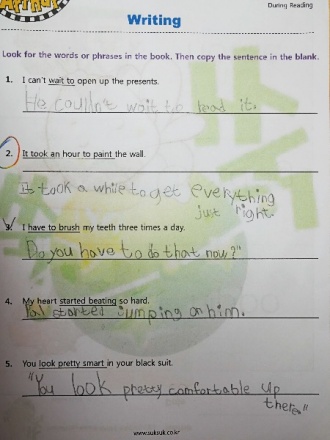 ARTHUR
During Reading
Writing
Look for the words or phrases in the book. Then copy the sentence in the blank.
1. I can't wait to open up the presents.
He couldn't wait to read it.
2. It took an hour to paint the wall.
It took a while to get everything
just right.
3. I have to brush my teeth three times a day.
Do you have to do that now?"
4. My heart started beating so hard.
Pal started jumping on him.
5. You look pretty smart in your black suit.
"You look pretty comfortable up
there."
www.suksuk.co.kr